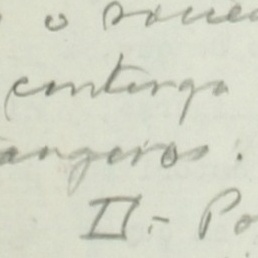 o
contenga
angeros.
II.- Po